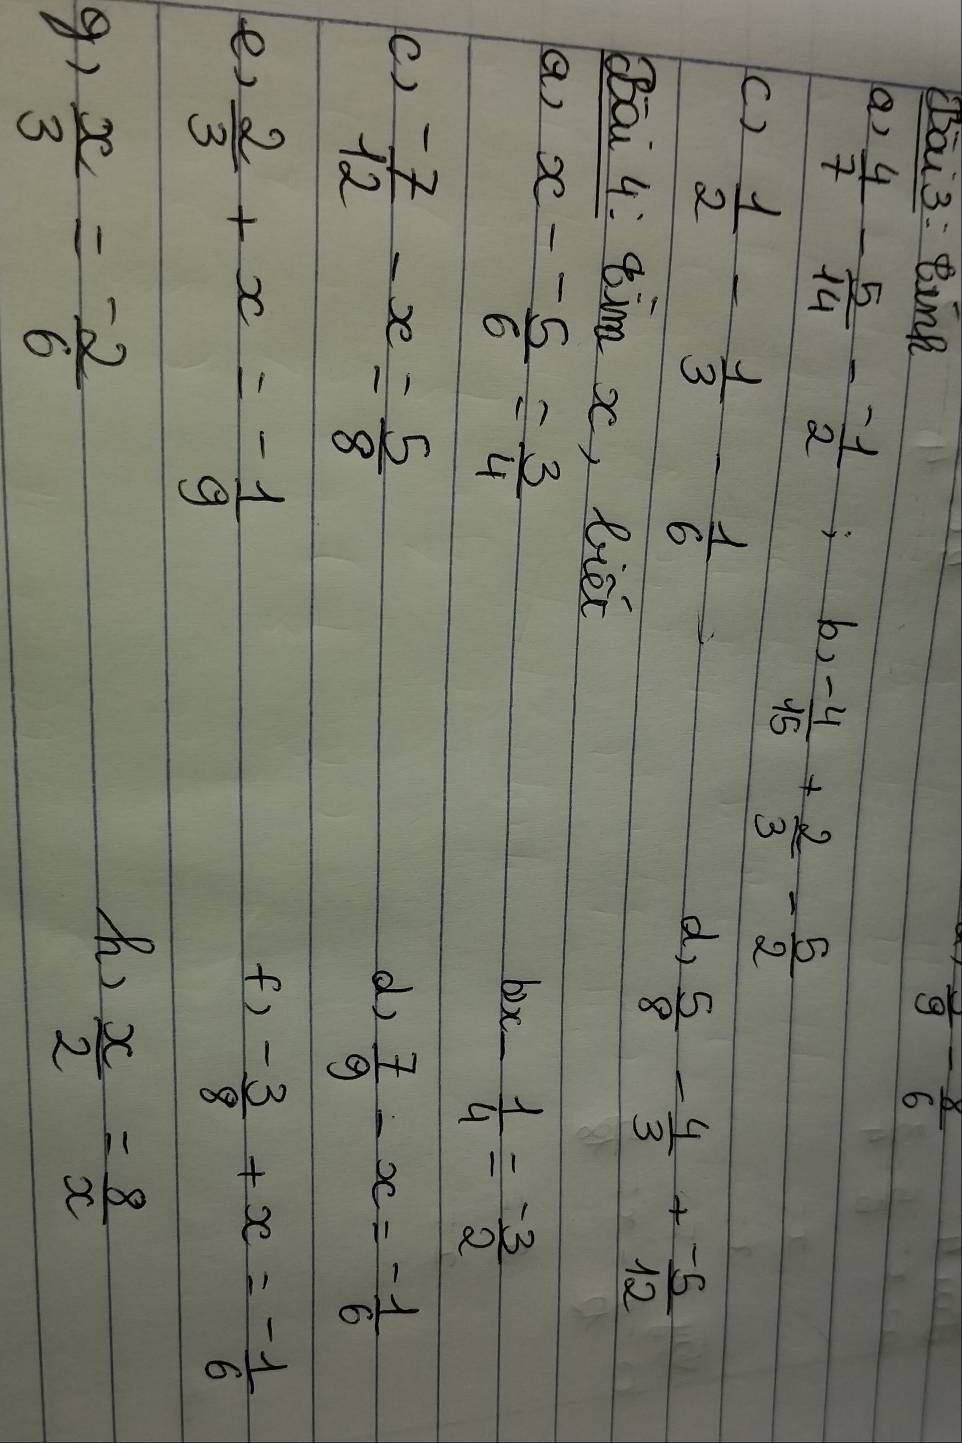 Bài 3: tính
a, 4/7 - 5/14 - -1/2 ; b, -4/15 + 2/3 - 5/2
c, 1/2 - 1/3 - 1/6 ; d, 5/8 - 4/3 + -5/12
Bài 4: tìm x, biết
a, x - -5/6 = 3/4 bx - 1/4 = -3/2
c, -7/12 - x = 5/8 d, 7/9 - x = -1/6
e, 2/3 + x = -1/9 f, -3/8 + x = -1/6
g, x/3 = -2/6 h, x/2 = 8/x